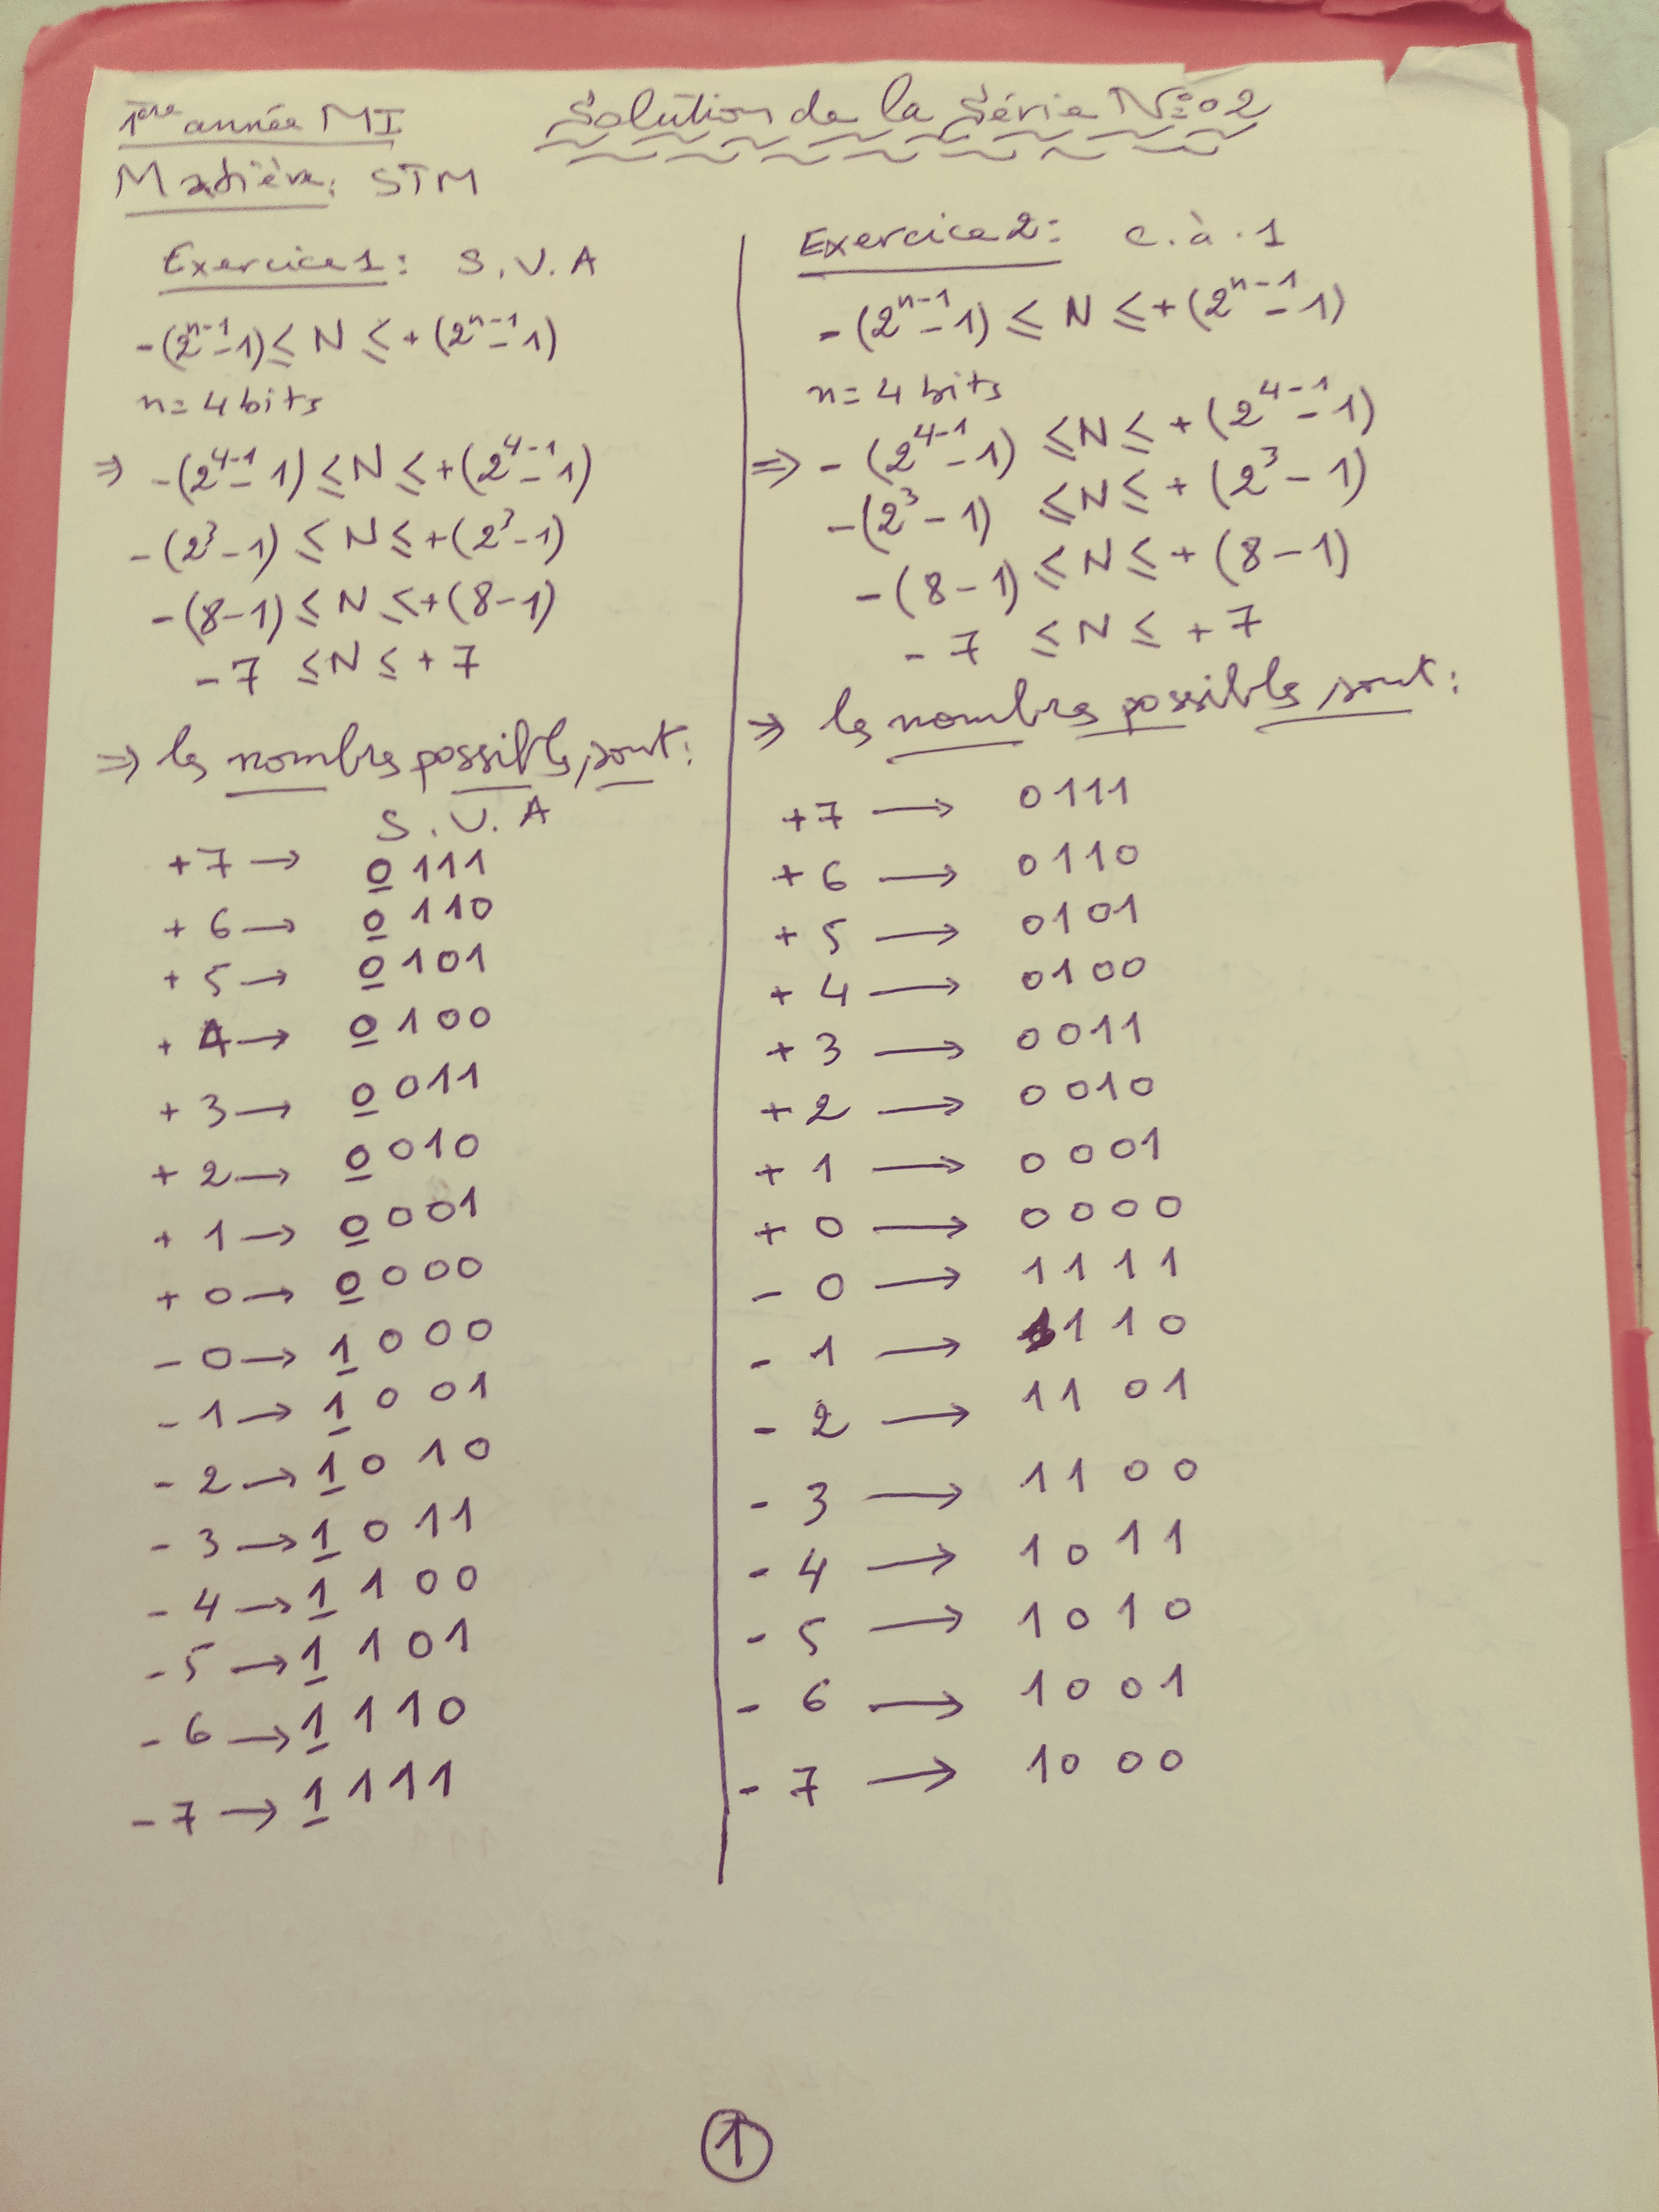 1ère année MI
Solution de la Série N° 02
Matière: STM
Exercice 1: S.V.A
-(2^{n-1}-1) ≤ N ≤ +(2^{n-1}-1)
n = 4 bits
⇒ -(2^{4-1}-1) ≤ N ≤ +(2^{4-1}-1)
-(2^3-1) ≤ N ≤ +(2^3-1)
-(8-1) ≤ N ≤ +(8-1)
-7 ≤ N ≤ +7
⇒ les nombres possibles sont:
S.V.A
+7 → 0111
+6 → 0110
+5 → 0101
+4 → 0100
+3 → 0011
+2 → 0010
+1 → 0001
+0 → 0000
-0 → 1000
-1 → 1001
-2 → 1010
-3 → 1011
-4 → 1100
-5 → 1101
-6 → 1110
-7 → 1111
Exercice 2: c.à.1
-(2^{n-1}-1) ≤ N ≤ +(2^{n-1}-1)
n = 4 bits
⇒ -(2^{4-1}-1) ≤ N ≤ +(2^{4-1}-1)
-(2^3-1) ≤ N ≤ +(2^3-1)
-(8-1) ≤ N ≤ +(8-1)
-7 ≤ N ≤ +7
⇒ les nombres possibles sont:
+7 → 0111
+6 → 0110
+5 → 0101
+4 → 0100
+3 → 0011
+2 → 0010
+1 → 0001
+0 → 0000
-0 → 1111
-1 → 1110
-2 → 1101
-3 → 1100
-4 → 1011
-5 → 1010
-6 → 1001
-7 → 1000
1